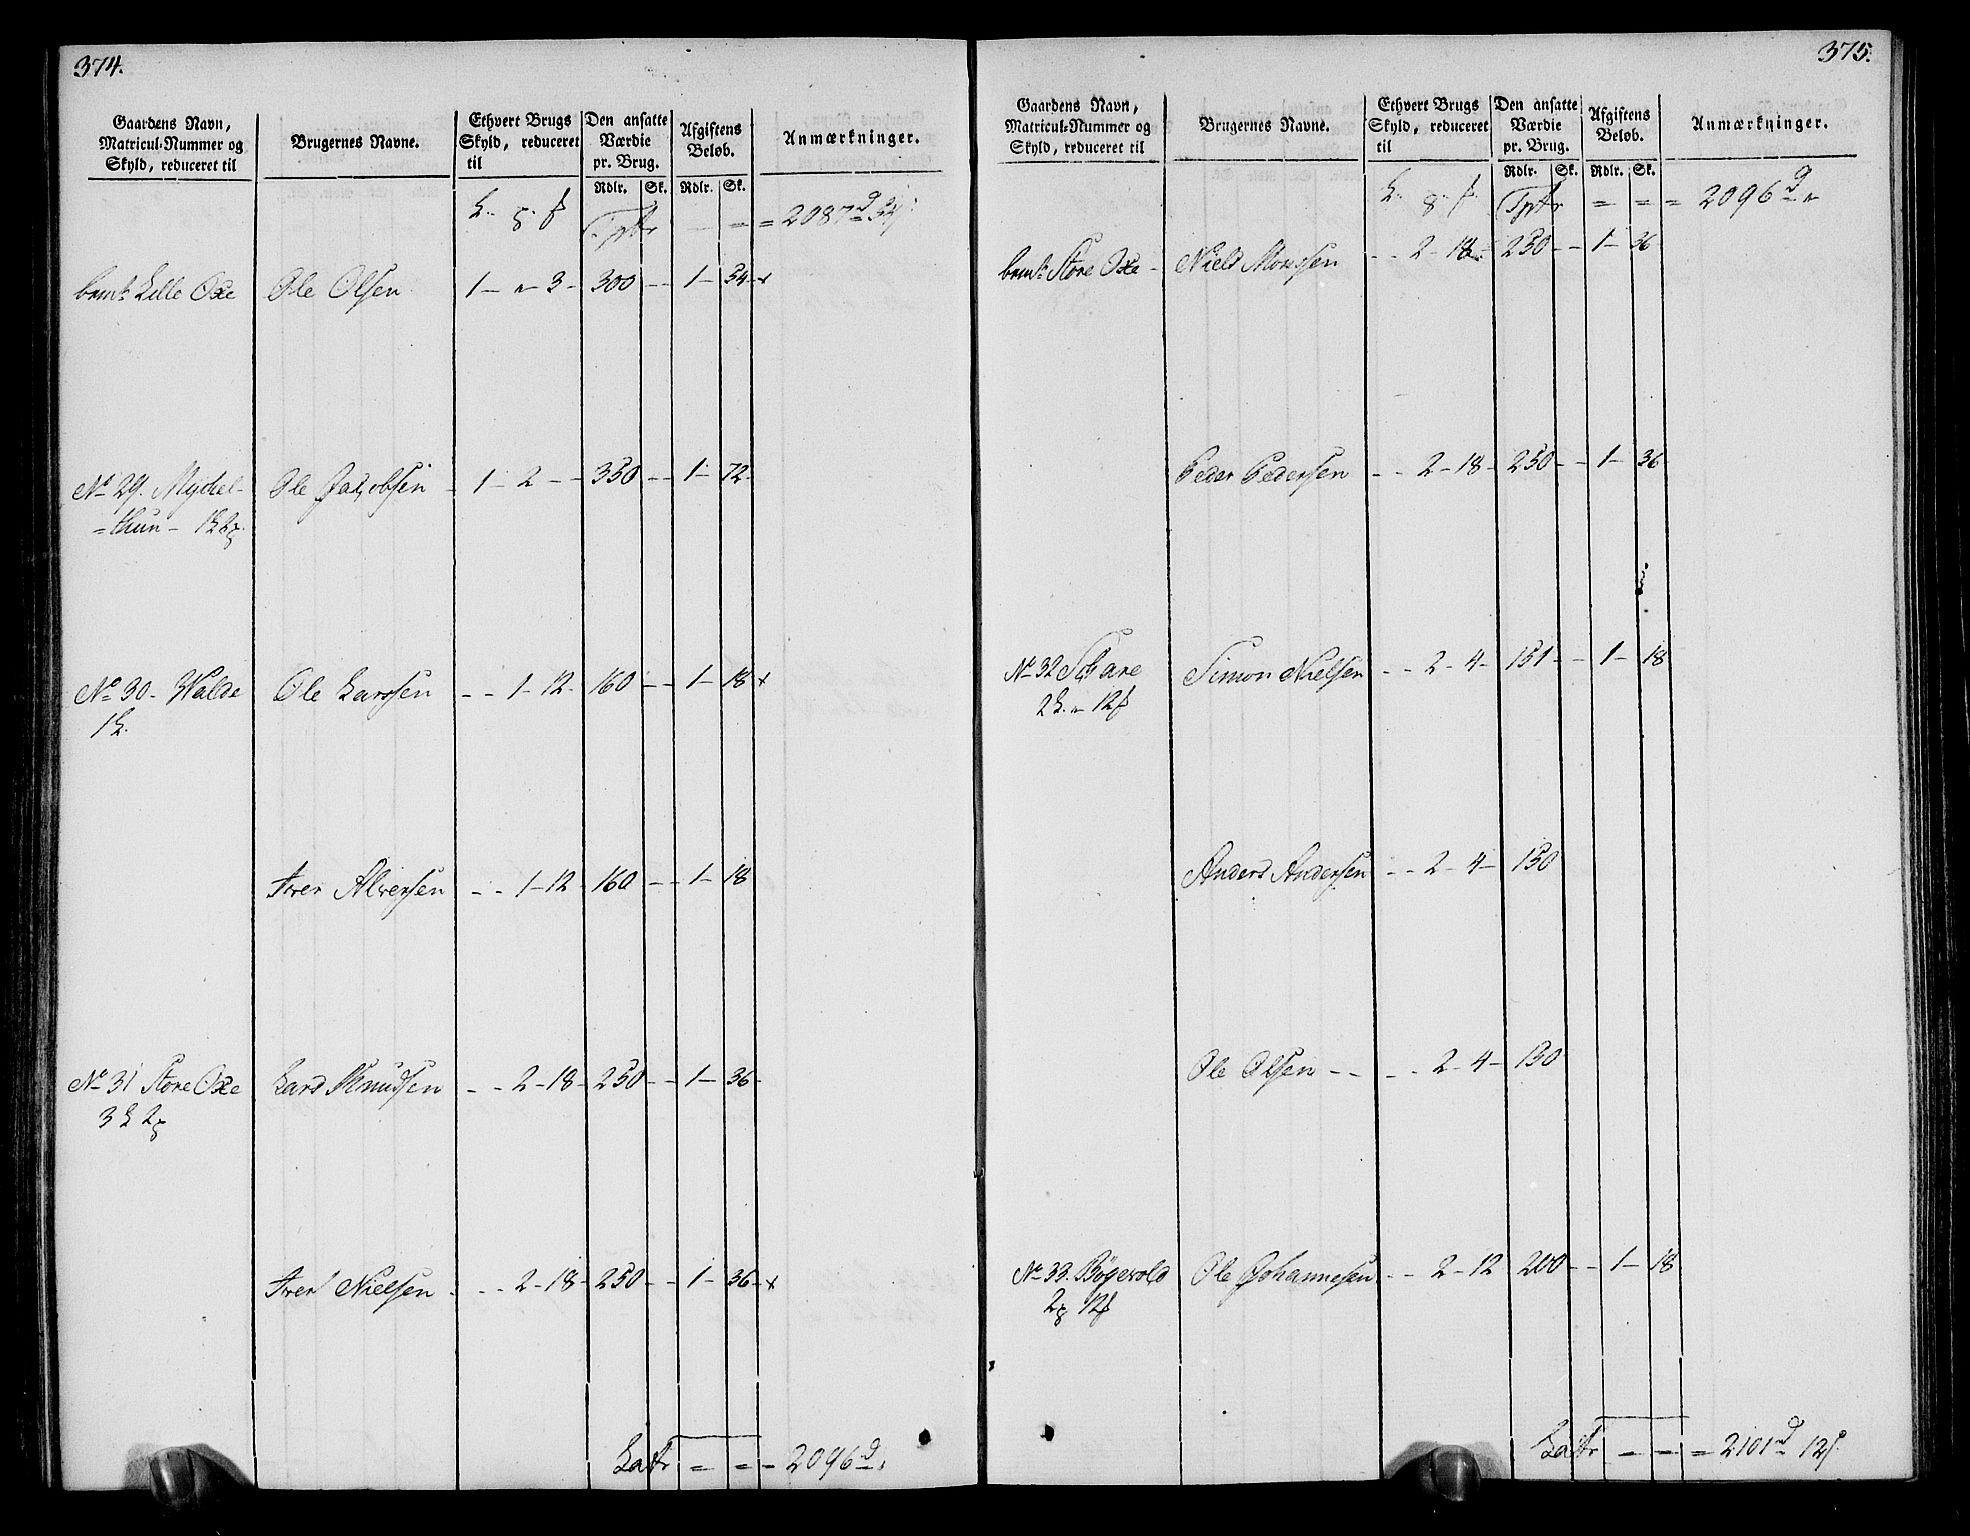 374.
Gaardens Navn, Matricul-Nummer og Skyld, reduceret til
Brugernes Navne.
Ethvert Brugs Skyld, reduceret til
Den ansatte Værdie pr. Brug.
Afgiftens Beløb.
Anmærkninger.
Rdlr. Sk. Rdlr. Sk.
= = 2087 d 34
Lille Oxe Ole Olsen 1 - " - 3 - 300 - - 1 - 54
No 29. Myckel- Ole Jacobsen - 1 - 2 - - 350 - - 1 - 72
=thun -
No 30 - Walde Ole Larssen - - 1 - 12 - 160 - - 1 - 18 x
1 L.
Iver Alversen - - 1 - 12 - 160 - - 1 - 18
No 31 Store Oxe Lars Knudsen - - 2 - 18 - 250 - - 1 - 36
3 L 2
Iver Nielsen - - 2 - 18 - 250 - - 1 - 36 - x
Latr = = = 2096 d
375.
Gaardens Navn, Matricul-Nummer og Skyld, reduceret til
Brugernes Navne.
Ethvert Brugs Skyld, reduceret til
Den ansatte Værdie pr. Brug.
Afgiftens Beløb.
Anmærkninger.
Rdlr. Sk. Rdlr. Sk.
= = = 2096 d "
Store Oxe - Niels Monsen - - 2 - 18 - 250 - - 1 - 36
Peder Pedersen - - 2 - 18 - 250 - - 1 - 36
No 32 Simon Nielsen - - 2 - 4 - 151 - - 1 - 18
2 L. " 12
Anders Andersen - - 2 - 4 - 150
Ole Olsen - - - - 2 - 4 - 150
No 33. Bøgevold Ole Johannesen - - 2 - 12 200 - - 1 - 18
2 12
Latr = = = 2101 d 12